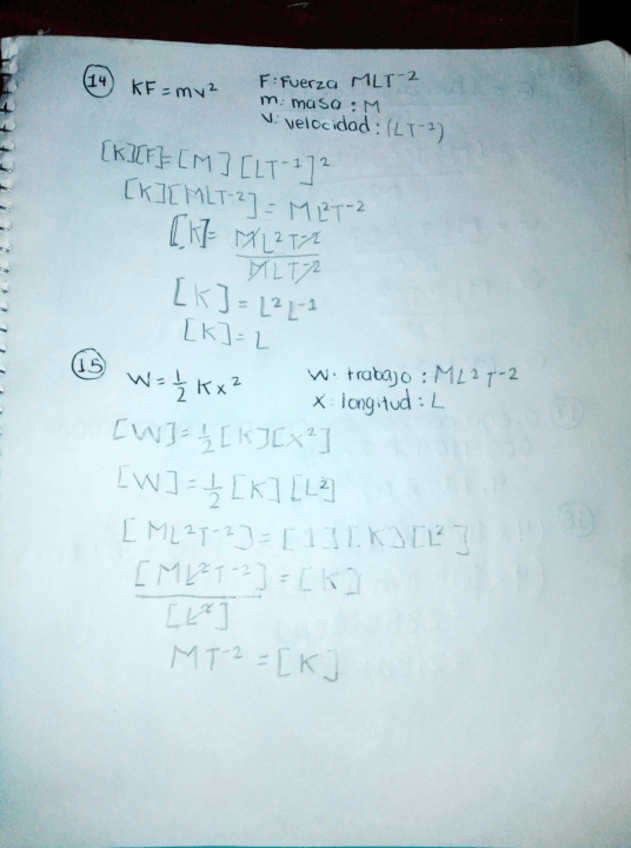 14 KF = mv² F: Fuerza MLT-2
m: masa : M
V: velocidad : (LT-1)
[K][F]=[M][LT-1]²
[K][MLT-2] = ML²T-2
[K]= ML²T-2
MLT-2
[K] = L²L-1
[K] = L
15 W = 1/2 Kx² W: trabajo : ML²T-2
X: longitud : L
[W] = 1/2 [K][x²]
[W] = 1/2 [K] [L²]
[ML²T-2] = [1][K][L²]
[ML²T-2] = [K]
[L²]
MT-2 = [K]